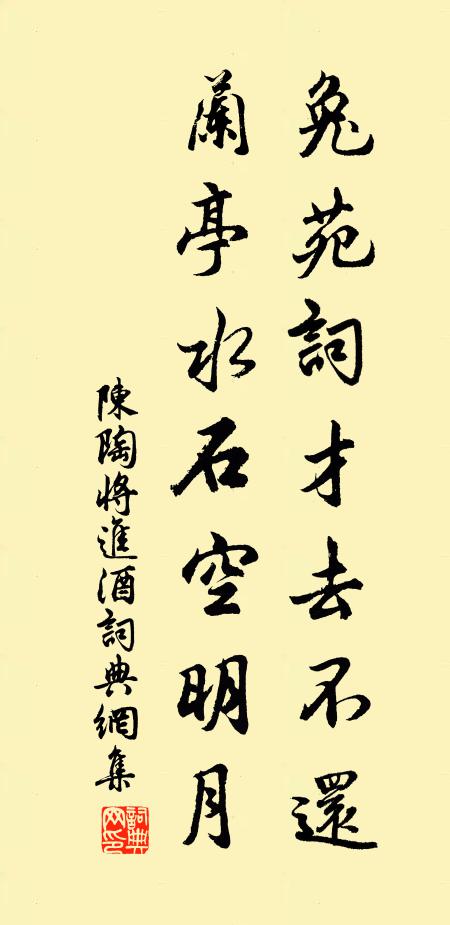 兔苑詞才去不還
蘭亭水石空明月
陳陶將進酒詞典網集
詞典网印